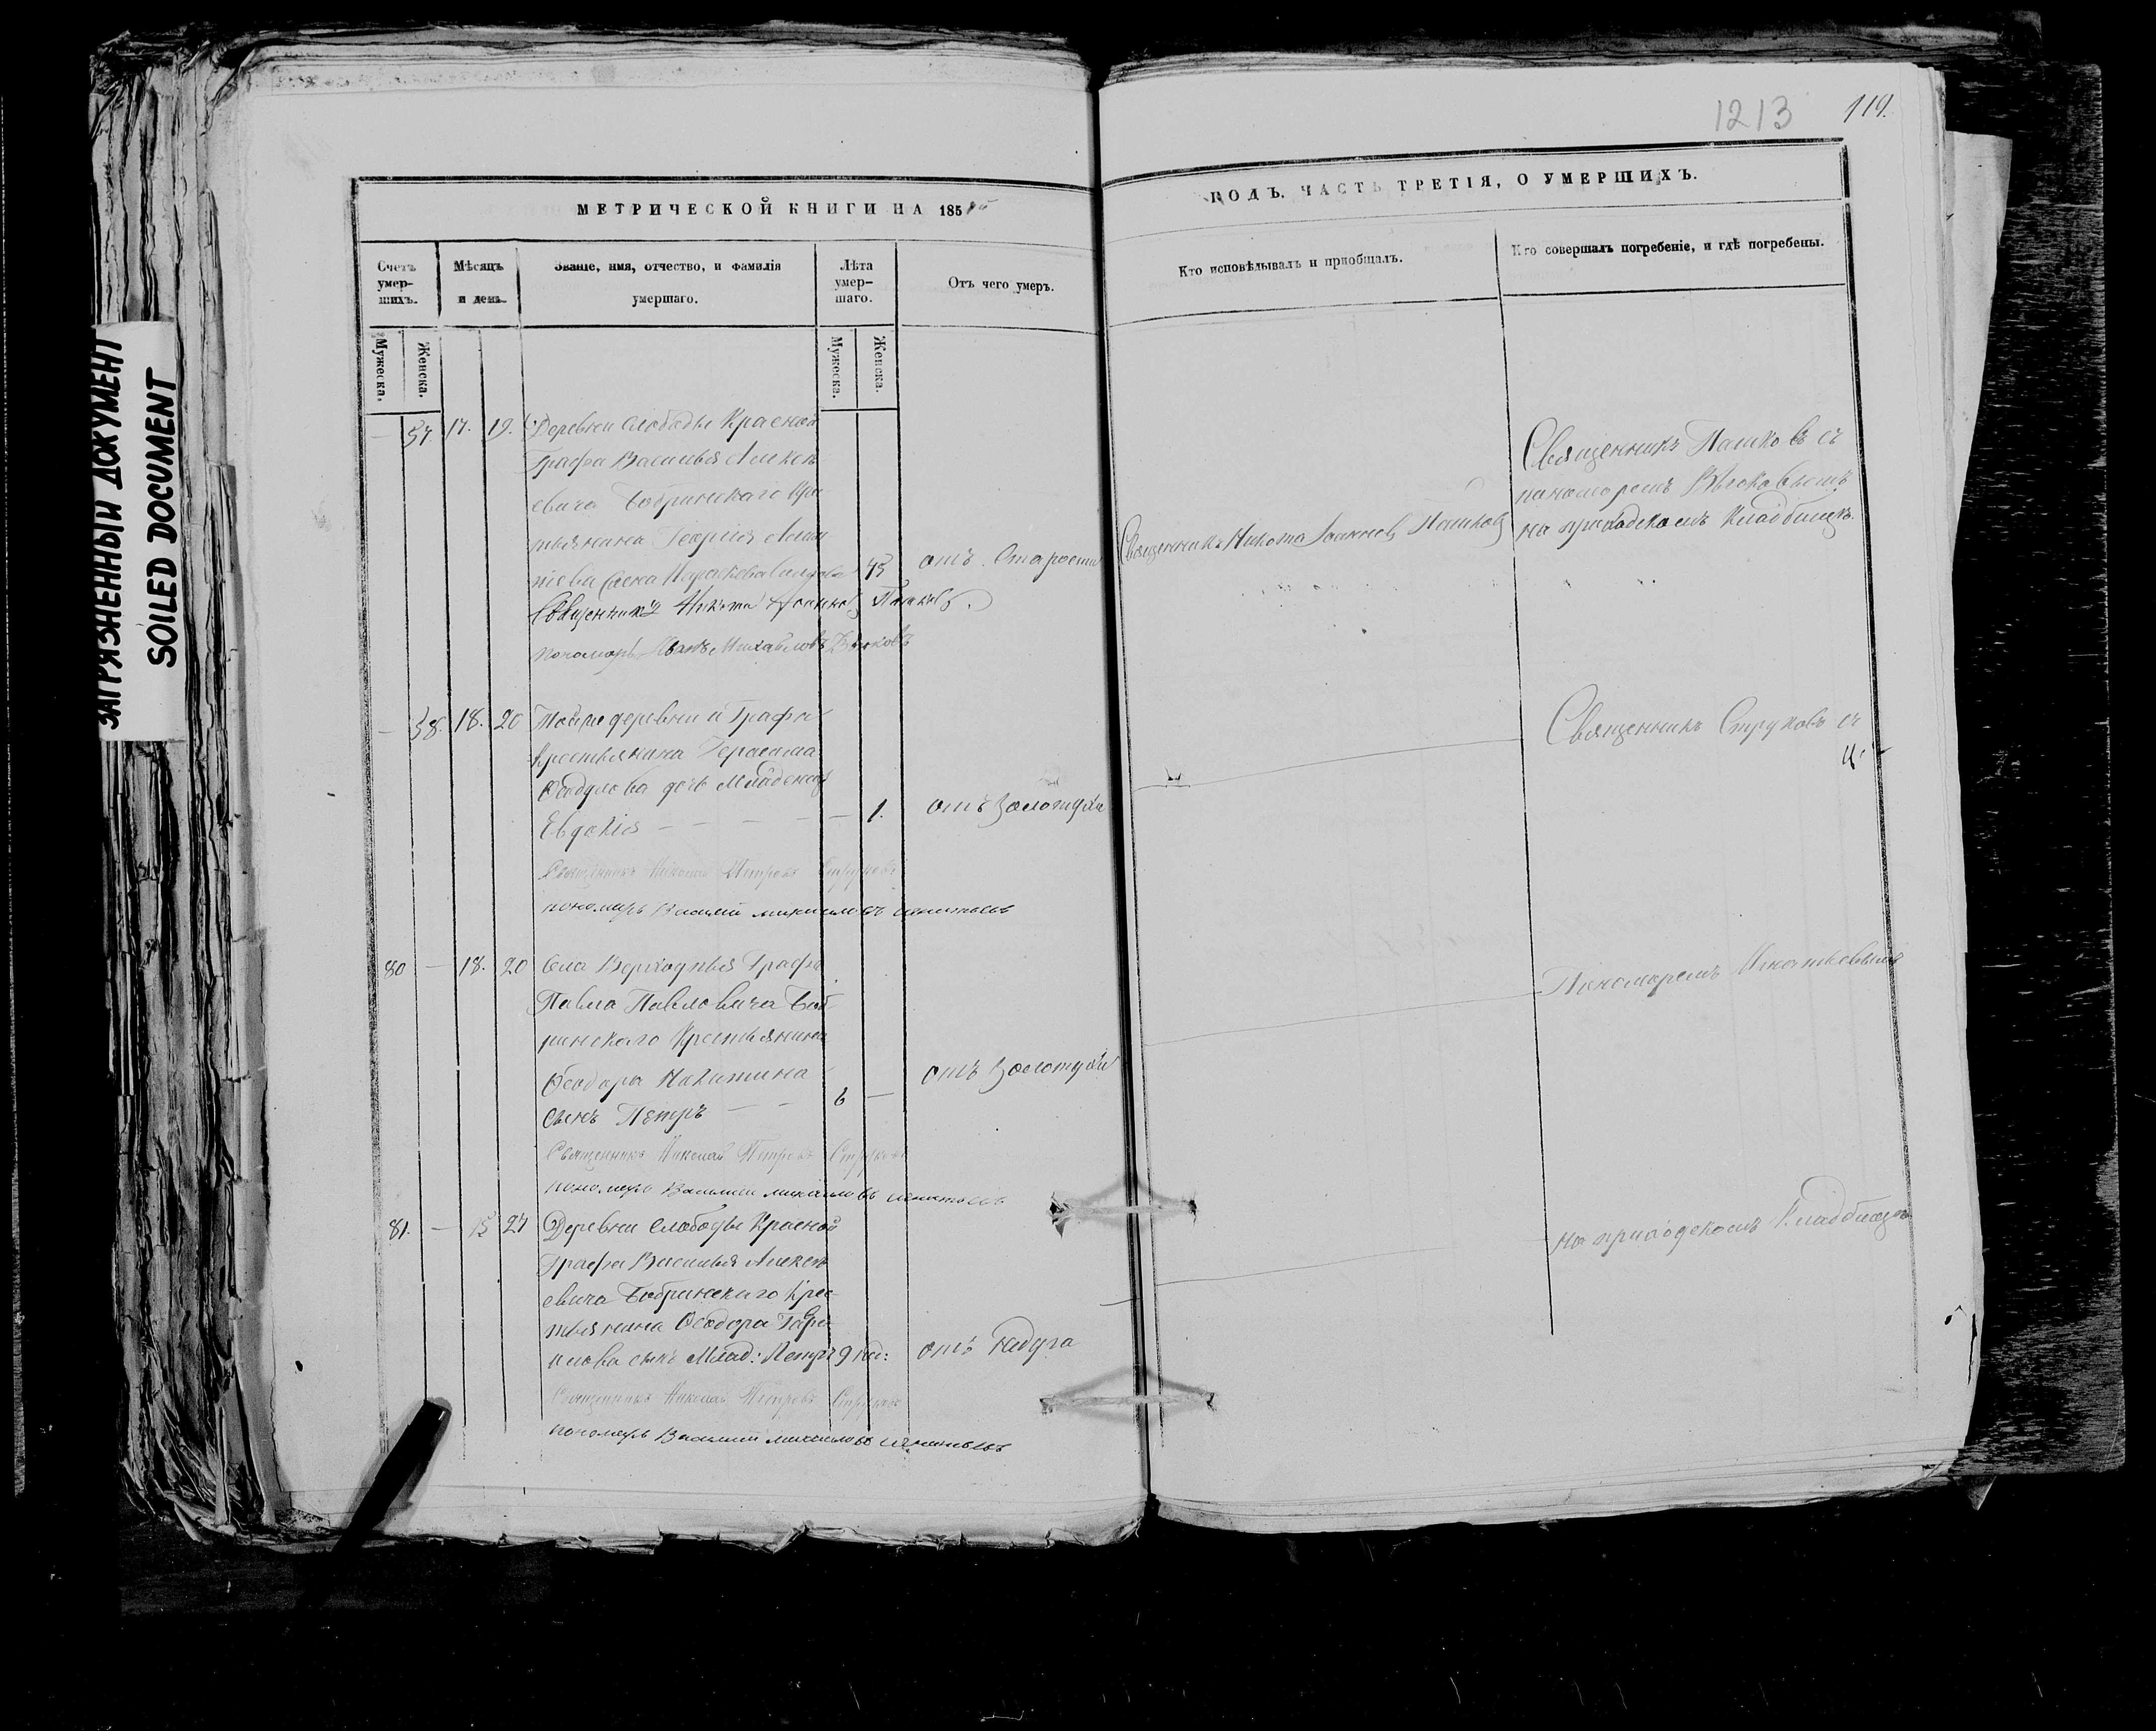 ЗАГРЯЗНЕННЫЙ ДОКУМЕНТ
SOILED DOCUMENT
1213 119.
МЕТРИЧЕСКОЙ КНИГИ НА 185
ГОДЪ. ЧАСТЬ ТРЕТІЯ, О УМЕРШИХЪ.
Счетъ умер-шихъ.
Мѣсяцъ и день.
Званіе, имя, отчество, и фамилія умершаго.
Лѣта умер-шаго.
Отъ чего умеръ.
Кто исповѣдывалъ и пріобщалъ.
Кто совершалъ погребеніе, и гдѣ погребены.
Мужеска. Женска. Мужеска. Женска.
— 57 17. 19. Деревни Слободы Красной
Графа Василья Алексѣ
евича Бобринскаго Кре
стьянина Георгія
жена Параскева 75 отъ Старости
Священникъ Никита Іоанновъ Пашковъ
Священникъ Пашковъ съ
пономаремъ
на приходскомъ кладбищѣ.
Священникъ Никита Іоанновъ Пашковъ.
пономарь Иванъ Михайловъ
— 58. 18. 20 Тойже деревни и Графа
крестьянина Герасима
дочь Младенец
Евдокія — — — — — 1. отъ Золотухи
Священникъ Струковъ съ
Священникъ Николай Петровъ Струковъ
пономарь Василий михайловъ игнатьевъ
80 — 18. 20 Села Верхоупья Графа
Павла Павловича Боб
ринскаго Крестьянина
Ѳеодора Никитина
сынъ Петръ — — 6 — отъ Золотухи
Пономаремъ Игнатьевымъ
Священникъ Николай Петровъ Струковъ
пономарь Василий михайловъ игнатьевъ
81. — 15 27 Деревни Слободы Красной
Графа Василья Алексѣ
евича Бобринскаго Крес
тьянина Ѳеодора Гаври
лова сынъ Млад: Петръ 9 нед: отъ
на приходскомъ Кладбищѣ
Священникъ Николай Петровъ Струковъ
пономарь Василий михайловъ игнатьевъ